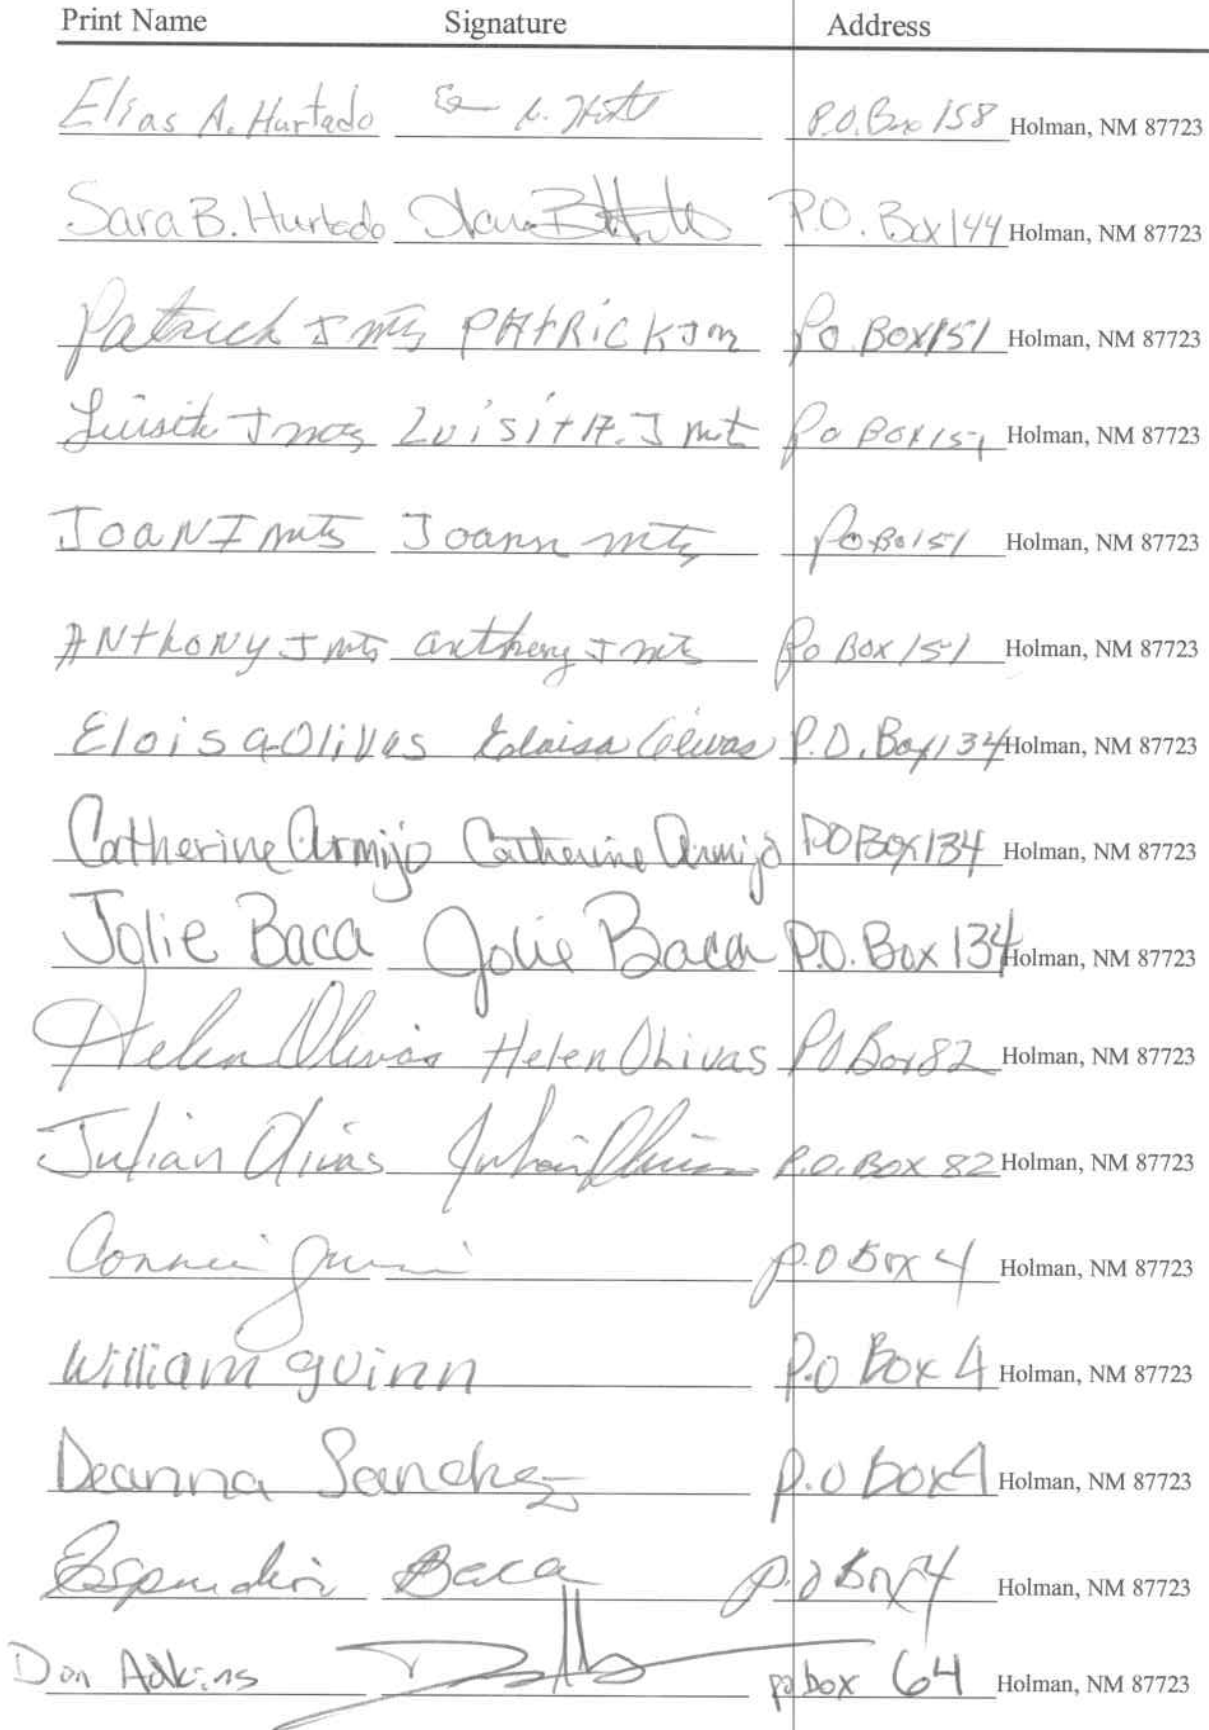 Print Name Signature Address
Elias A. Hurtado P.O. Box 158 Holman, NM 87723
Sara B. Hurtado P.O. Box 144 Holman, NM 87723
Patrick J mtz PAtRiCk J m Po Box 151 Holman, NM 87723
J Luisita J mt Po Box 151 Holman, NM 87723
JoaN I mtz Joann mtz Po Bo 151 Holman, NM 87723
ANthoNy J mtz anthony J mtz Po Box 151 Holman, NM 87723
Eloisa Olivas Eloisa Olivas P.O. Box 134 Holman, NM 87723
Catherine Armijo Catherine Armijo PO Box 134 Holman, NM 87723
Jolie Baca Jolie Baca P.O. Box 134 Holman, NM 87723
Helen Olivas Helen Olivas PO Box 82 Holman, NM 87723
Julian Olivas Julian Olivas P.O. Box 82 Holman, NM 87723
Connie P.O Box 4 Holman, NM 87723
William quinn P.O Box 4 Holman, NM 87723
Deanna Sanchez P.O Box 4 Holman, NM 87723
Baca P.O Box 4 Holman, NM 87723
Don Adkins po box 64 Holman, NM 87723